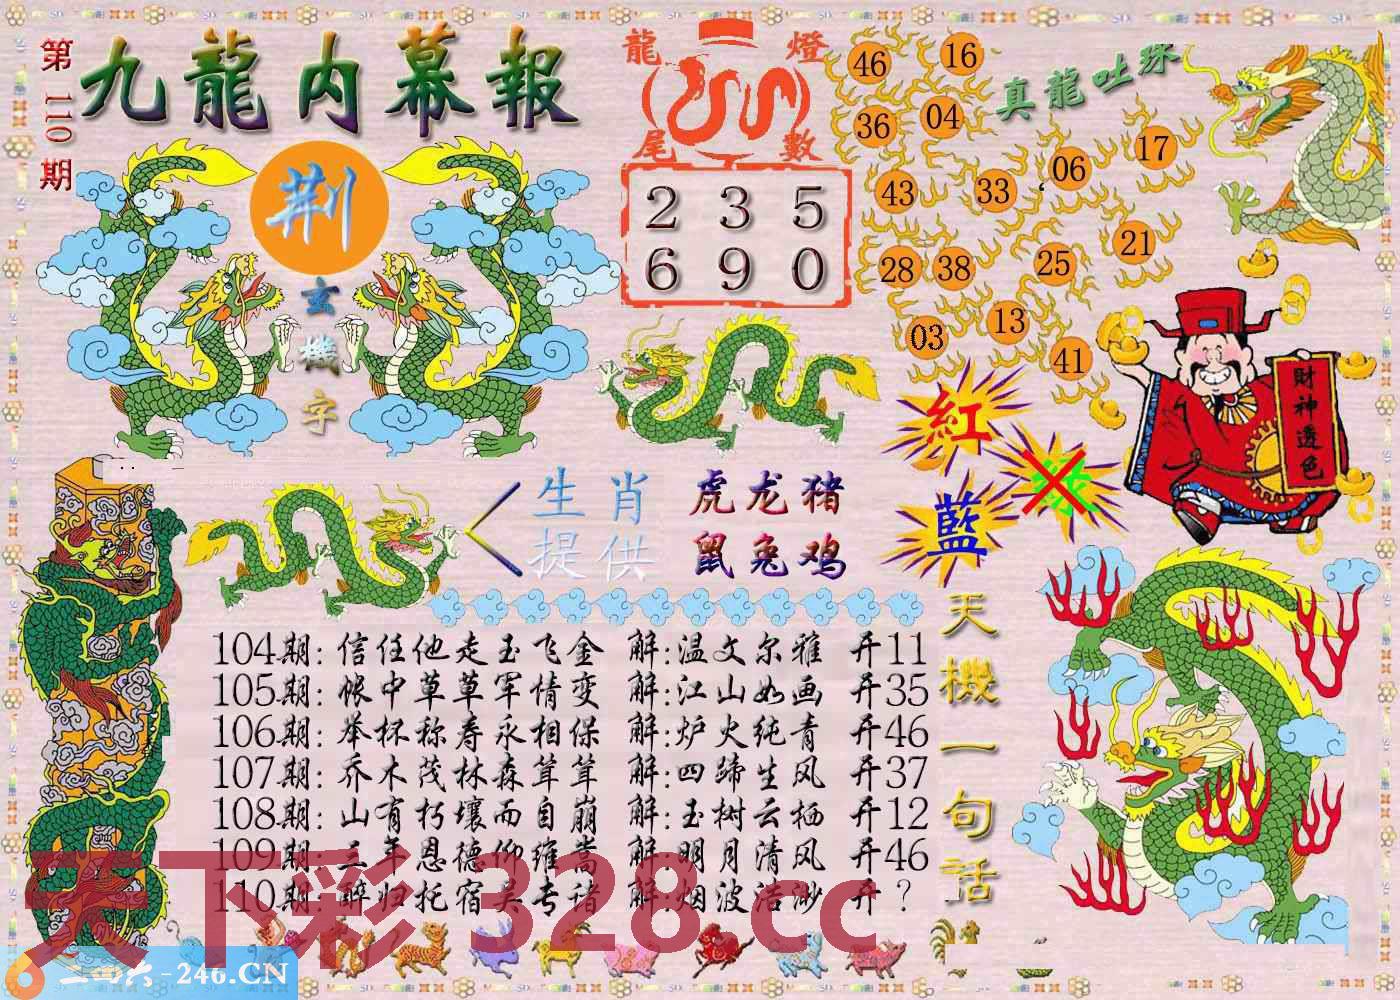 第110期
九龍内幕報
荆
玄機字
龍燈
尾數
2 3 5
6 9 0
真龍吐珠
46 16
36 04
43 33 06 17
28 38 25 21
03 13 41
財神透色
紅
藍
生肖
提供
虎龙猪
鼠兔鸡
天機一句話
104期: 信任他走玉飞金 解:温文尔雅 开11
105期: 帐中草草军情变 解:江山如画 开35
106期: 举杯称寿永相保 解:炉火纯青 开46
107期: 乔木茂林森茸茸 解:四蹄生风 开37
108期: 山有朽壤而自崩 解:玉树云栖 开12
109期: 三年恩德仰维嵩 解:明月清风 开46
110期: 醉归托宿吴专诸 解:烟波浩渺 开？
天下彩 328.cc
二四六-246.CN